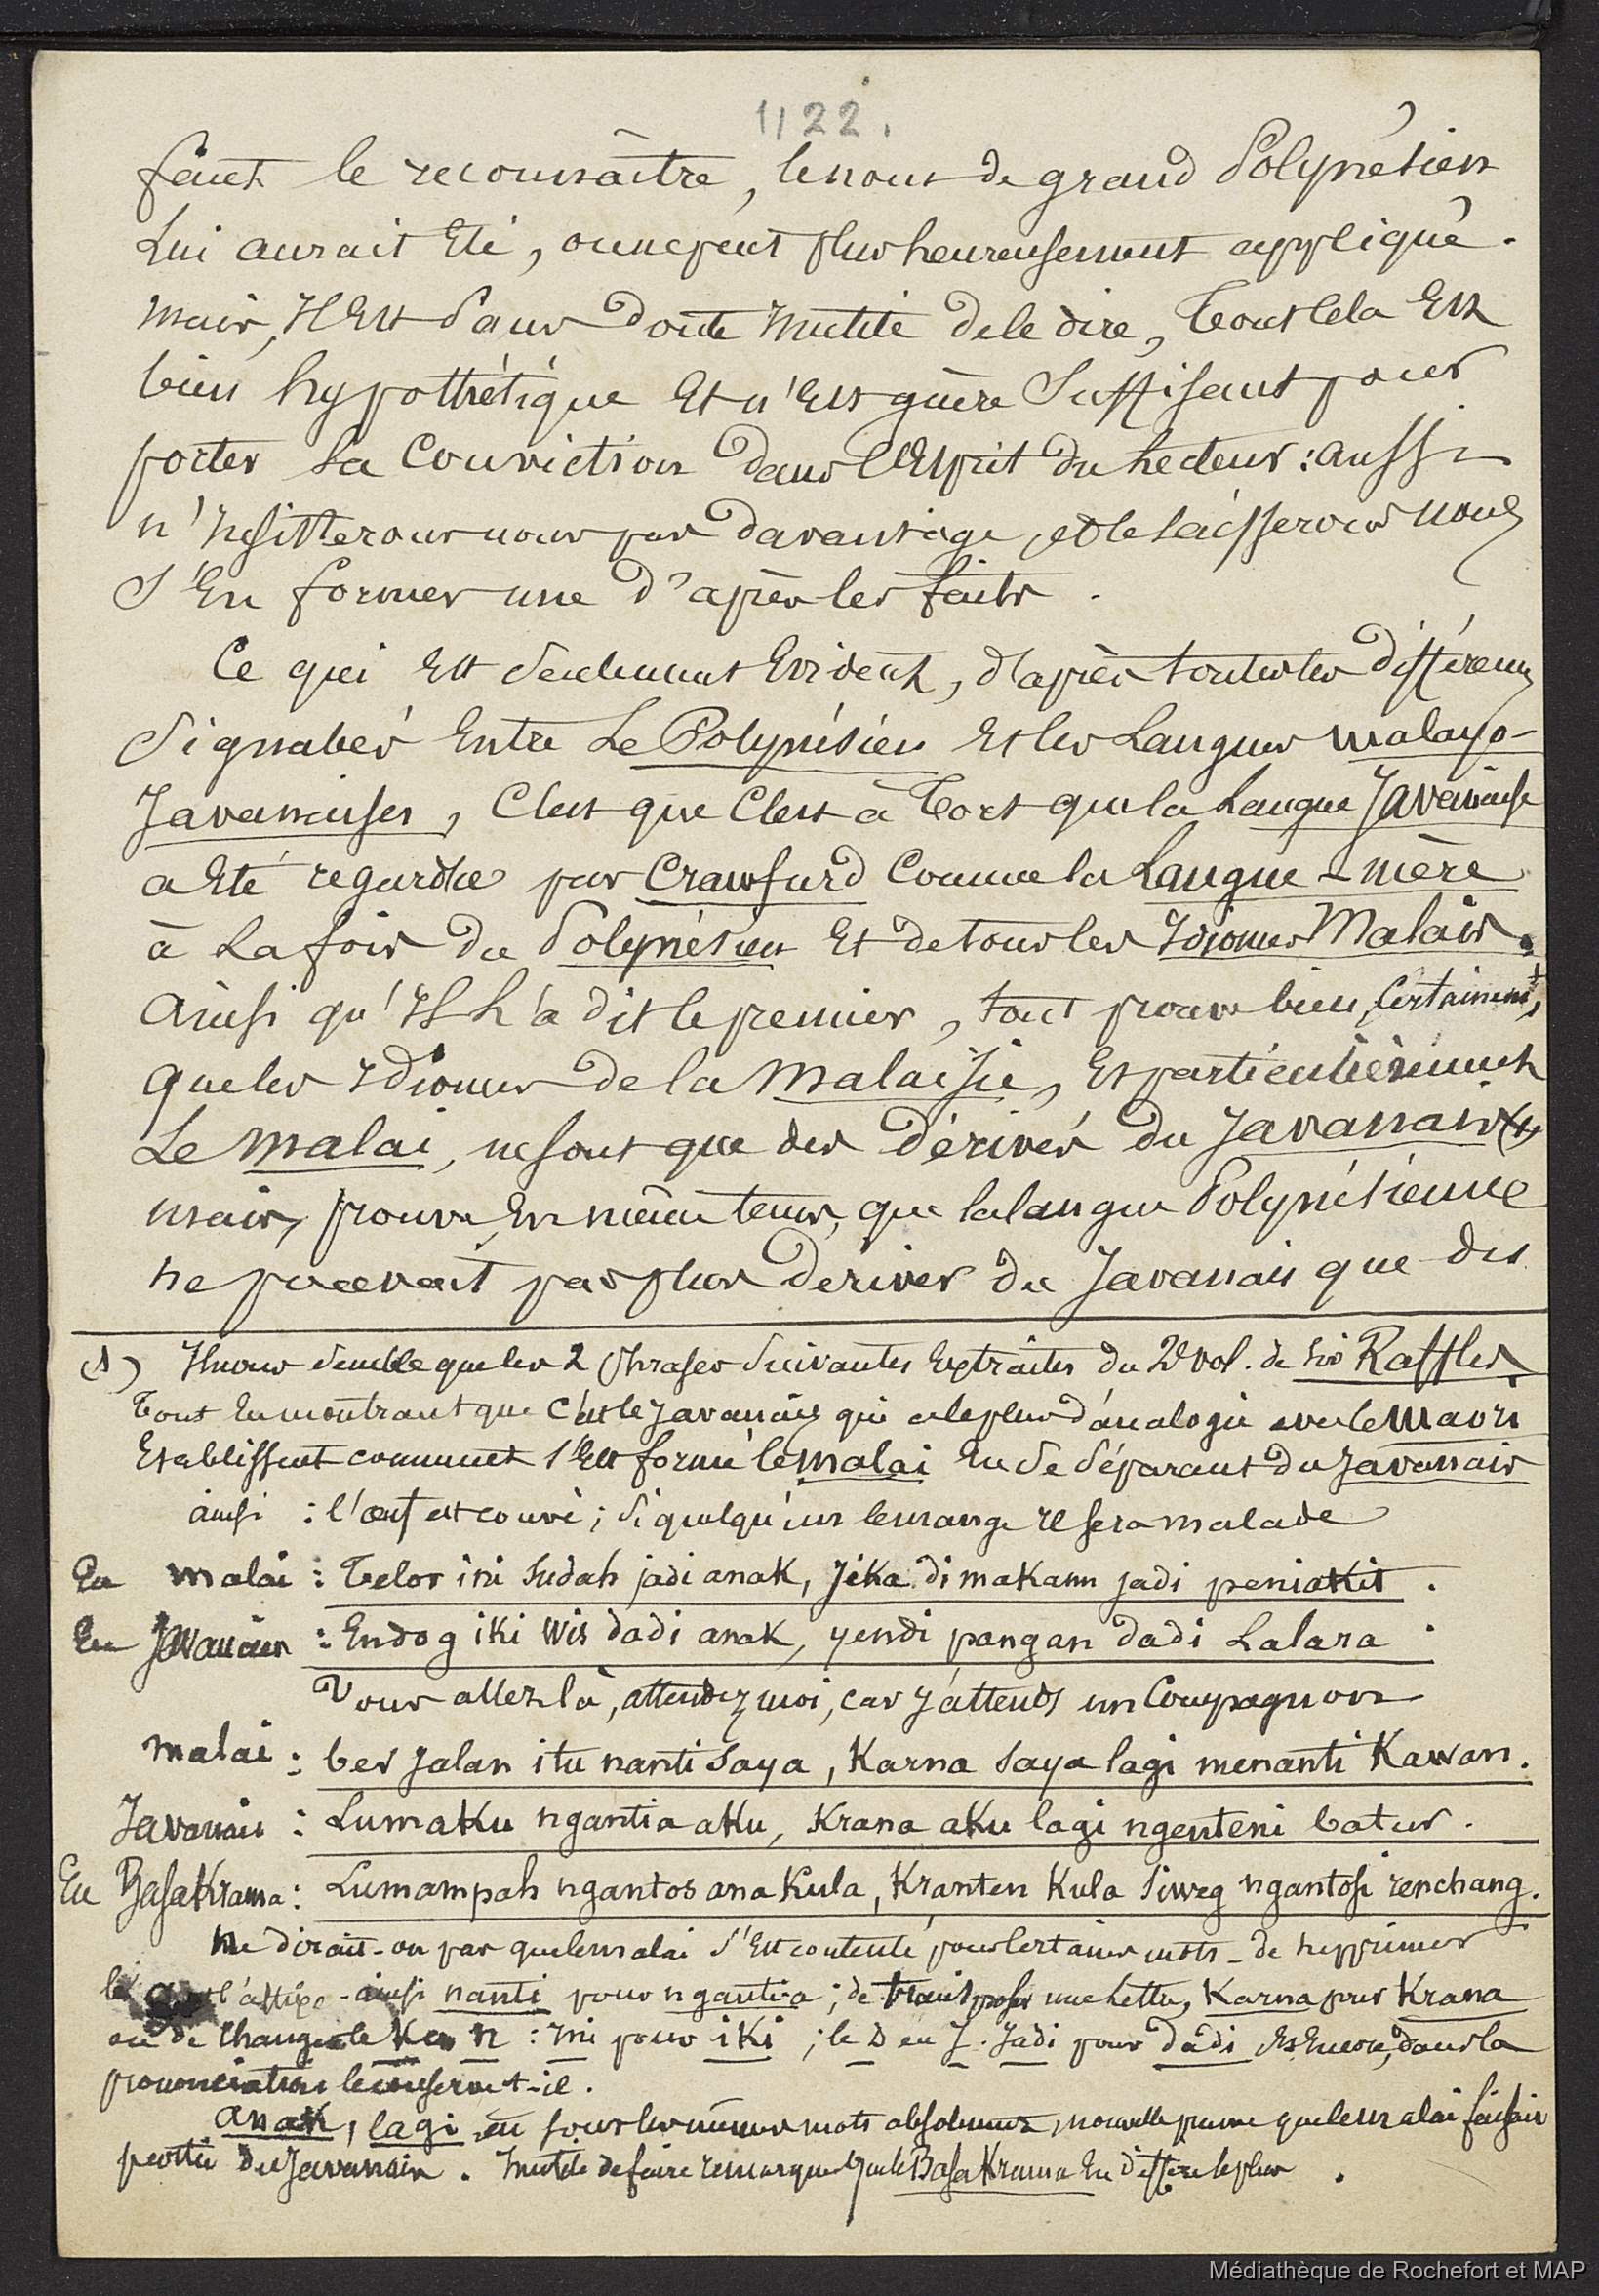 1122.
faut le reconnaître, le nom de grand Polynésien
lui aurait été, on ne peut plus heureusement appliqué.
mais, Il Est Sans doute Inutile de le dire, tout cela Est
bien hypothétique Et n'Est guère Suffisant pour
porter la Conviction dans l'Esprit du lecteur : aussi
n'hésitterons nous pas davantage, et le laisserons nous
S'En former une d'après les faits.
Ce qui Est Seulement Evident, d'après toutes les différences
Signalées Entre Le Polynésien Et les Langues malayo-
Javanaises, C'est que C'est à tort que la Langue Javanaise
a Eté regardée par Crawfurd Comme la Langue-mère
à La fois du Polynésien Et de tous les Idiomes Malais.
Ainsi qu'Il l'a dit le premier, tout prouve bien, Certainemt,
que les Idiomes de la Malaisie, Et particulièrement
Le malai, ne sont que des dérivés du Javanais (1)
mais, prouve, En même tems, que la langue Polynésienne
ne pouvait pas plus dériver du Javanais que des
(1) Il nous Semble que les 2 phrases Suivantes Extraites du 2e vol. de Sir Raffles,
tout En montrant que C'est le Javanais qui a le plus d'analogie avec le Maori
Etablissent comment s'Est formé le malai En Se Séparant du Javanais
ainsi : l'œuf est couvé ; Si quelqu'un le mange Il Sera malade
En malai : Telor ini Sudah jadi anak, Jika di makann jadi peniakit.
En Javanais : Endog iki Wis dadi anak, yendi pangan dadi Lalara.
Vous allez là, attendez moi, car J'attends un Compagnon
malai : ber Jalan itu nanti Saya, Karna Saya lagi menanti Kawan.
Javanais : Lumaku ngantia aku, Krana aku lagi ngenteni batur.
En Basa Krama : Lumampah ngantos ana Kula, Kranten Kula Siweg ngantosi renchang.
Ne dirait-on pas que le malai S'Est contenté pour Certains mots - de Supprimer
le l'affixe - ainsi nanti pour ngantia ; de transposer une lettre, Karna pour Krana
ou de Changer le K en n : Ini pour iki ; le D en J. Jadi pour dadi Et Encore, dans la
prononciation le conserve t-il.
anak, lagi, sont les mêmes mots absolument, nouvelle preuve que le malai faisait
partie du Javanais. Inutile de faire remarquer que le Basa Krama En diffère le plus.
Médiathèque de Rochefort et MAP